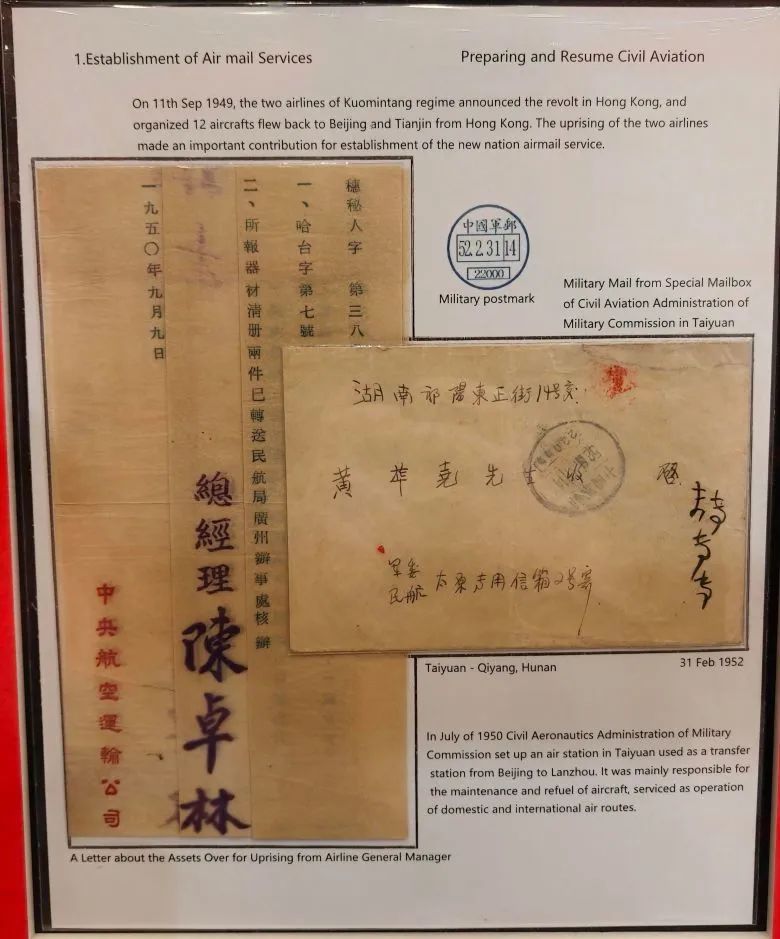 1.Establishment of Air mail Services
Preparing and Resume Civil Aviation
On 11th Sep 1949, the two airlines of Kuomintang regime announced the revolt in Hong Kong, and
organized 12 aircrafts flew back to Beijing and Tianjin from Hong Kong. The uprising of the two airlines
made an important contribution for establishment of the new nation airmail service.
穗秘人字 第三八
一、哈台字第七號
二、所報器材清册兩件已轉送民航局廣州辦事處核辦
一九五〇年九月九日
總經理陳卓林
中央航空運輸公司
中國軍郵
52.2.31 14
22000
Military postmark
Military Mail from Special Mailbox
of Civil Aviation Administration of
Military Commission in Taiyuan
湖南祁陽東正街14号交
黄 堯先生收 啓
军委
民航
太原专用信箱2号寄
Taiyuan - Qiyang, Hunan
31 Feb 1952
In July of 1950 Civil Aeronautics Administration of Military
Commission set up an air station in Taiyuan used as a transfer
station from Beijing to Lanzhou. It was mainly responsible for
the maintenance and refuel of aircraft, serviced as operation
of domestic and international air routes.
A Letter about the Assets Over for Uprising from Airline General Manager